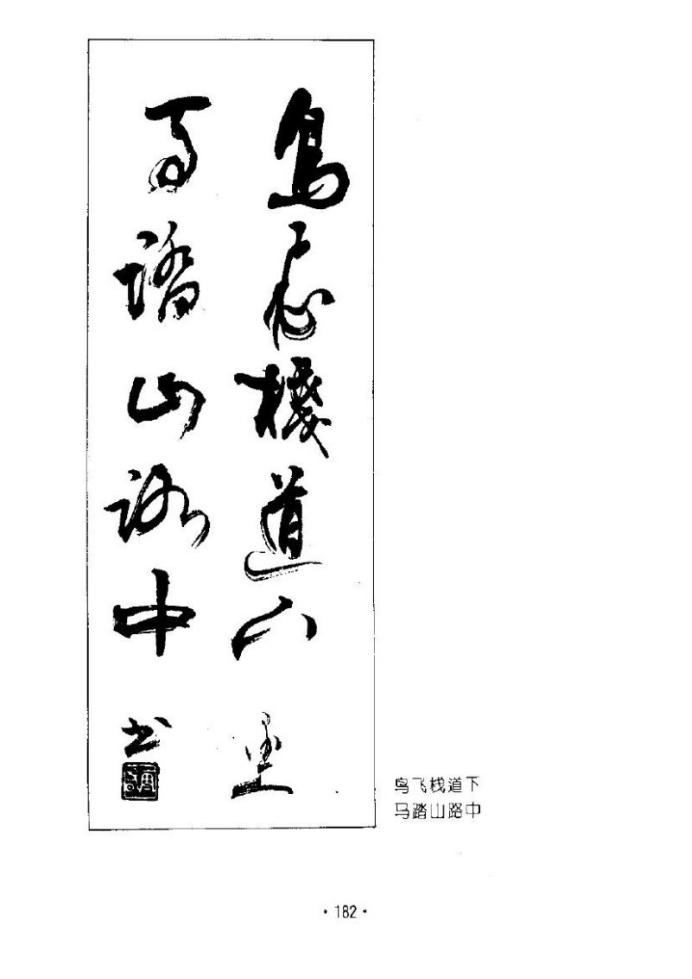 鸟飛棧道下
马踏山路中
书
鸟飞栈道下
马踏山路中
·182·